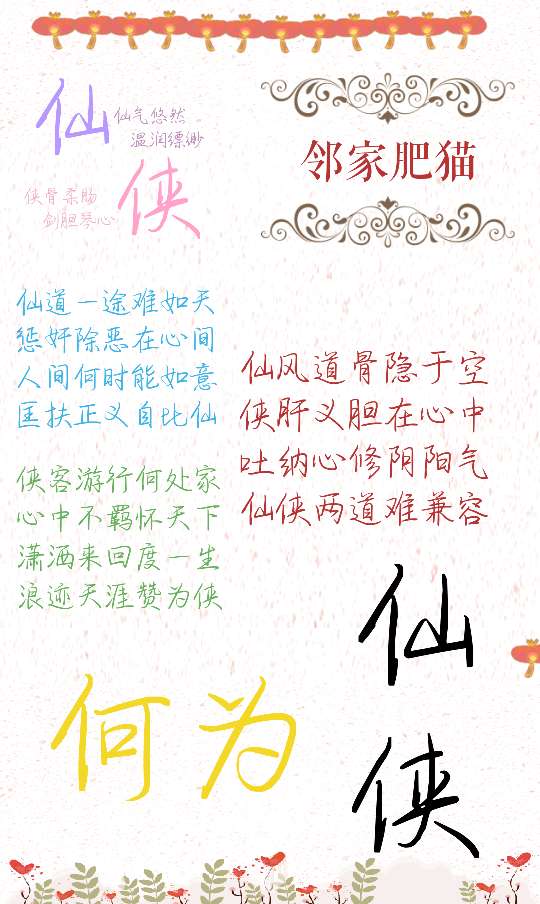 仙
仙气悠然
温润缥缈
侠骨柔肠
剑胆琴心
侠
邻家肥猫
仙道一途难如天
惩奸除恶在心间
人间何时能如意
匡扶正义自比仙
侠客游行何处家
心中不羁怀天下
潇洒来回度一生
浪迹天涯赞为侠
仙风道骨隐于空
侠肝义胆在心中
吐纳心修阴阳气
仙侠两道难兼容
何为
仙
侠